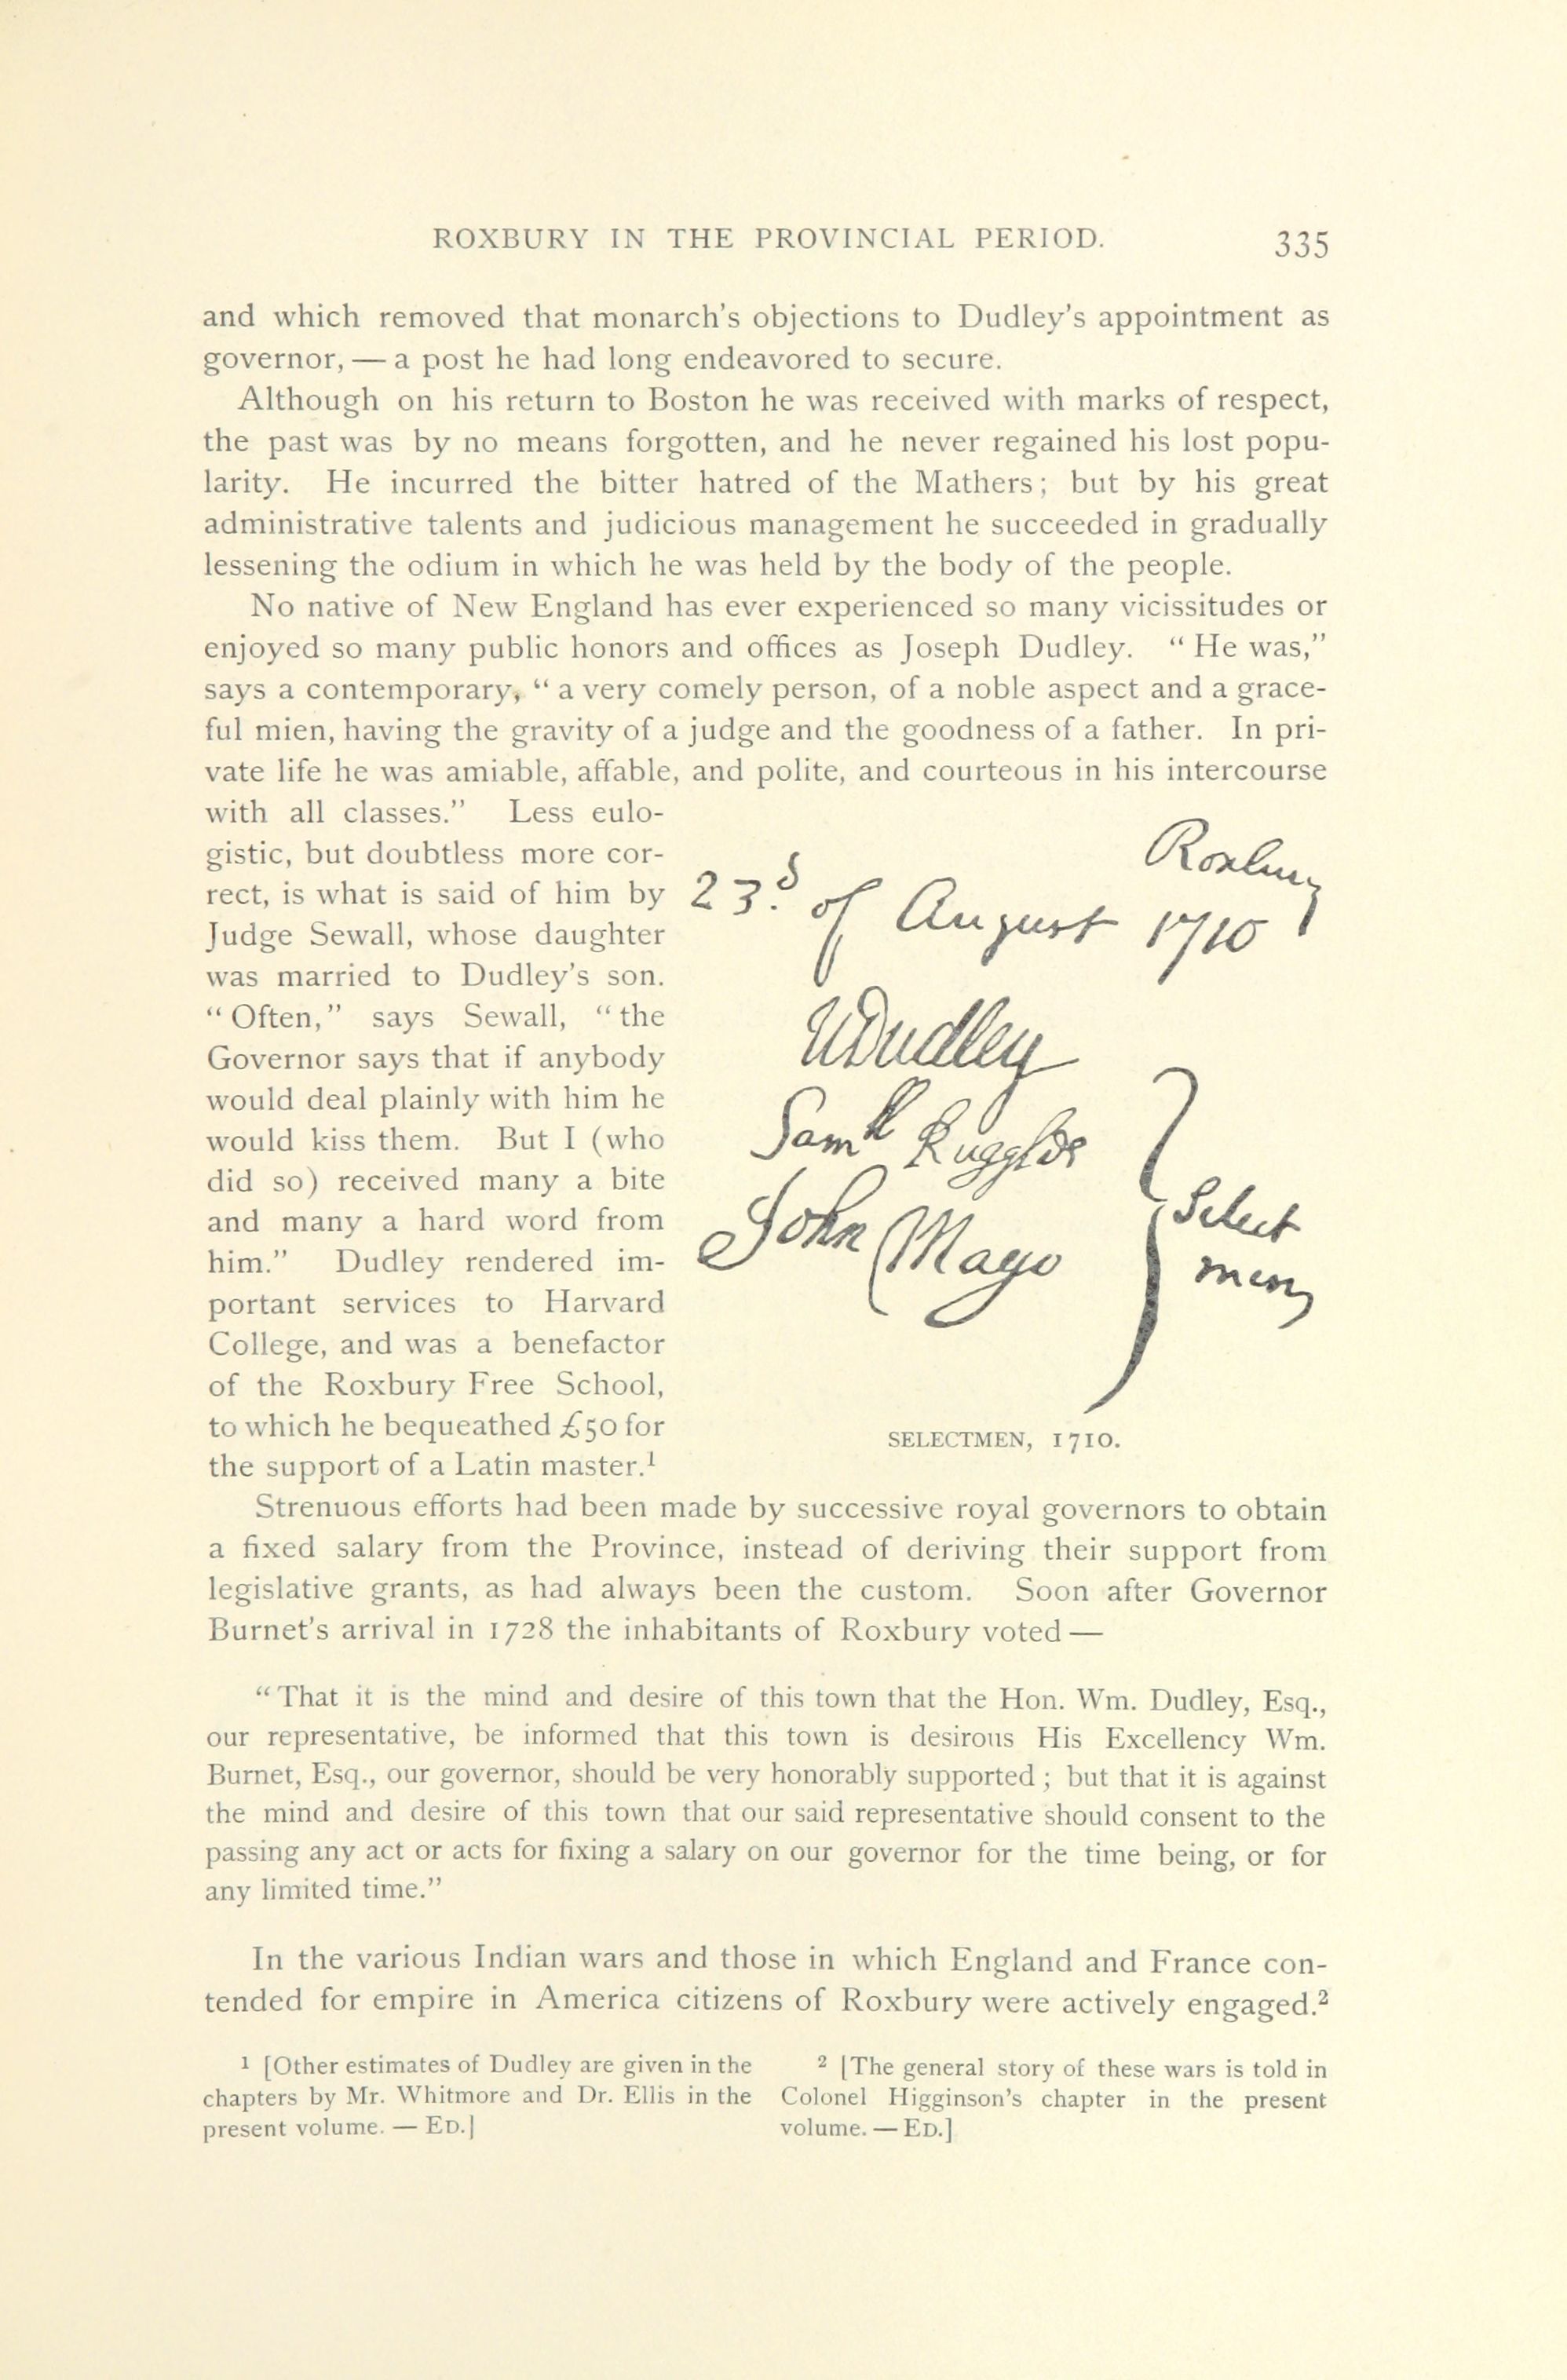 ROXBURY IN THE PROVINCIAL PERIOD. 335
and which removed that monarch's objections to Dudley's appointment as
governor, — a post he had long endeavored to secure.
Although on his return to Boston he was received with marks of respect,
the past was by no means forgotten, and he never regained his lost popu-
larity. He incurred the bitter hatred of the Mathers; but by his great
administrative talents and judicious management he succeeded in gradually
lessening the odium in which he was held by the body of the people.
No native of New England has ever experienced so many vicissitudes or
enjoyed so many public honors and offices as Joseph Dudley. "He was,"
says a contemporary, "a very comely person, of a noble aspect and a grace-
ful mien, having the gravity of a judge and the goodness of a father. In pri-
vate life he was amiable, affable, and polite, and courteous in his intercourse
with all classes." Less eulo-
gistic, but doubtless more cor-
rect, is what is said of him by
Judge Sewall, whose daughter
was married to Dudley's son.
"Often," says Sewall, "the
Governor says that if anybody
would deal plainly with him he
would kiss them. But I (who
did so) received many a bite
and many a hard word from
him." Dudley rendered im-
portant services to Harvard
College, and was a benefactor
of the Roxbury Free School,
to which he bequeathed £50 for
the support of a Latin master.¹
Roxbury
23.d of August 1710
WDudley
Samll Ruggles
John Mayo
Select
men
SELECTMEN, 1710.
Strenuous efforts had been made by successive royal governors to obtain
a fixed salary from the Province, instead of deriving their support from
legislative grants, as had always been the custom. Soon after Governor
Burnet's arrival in 1728 the inhabitants of Roxbury voted —
"That it is the mind and desire of this town that the Hon. Wm. Dudley, Esq.,
our representative, be informed that this town is desirous His Excellency Wm.
Burnet, Esq., our governor, should be very honorably supported; but that it is against
the mind and desire of this town that our said representative should consent to the
passing any act or acts for fixing a salary on our governor for the time being, or for
any limited time."
In the various Indian wars and those in which England and France con-
tended for empire in America citizens of Roxbury were actively engaged.²
¹ [Other estimates of Dudley are given in the
chapters by Mr. Whitmore and Dr. Ellis in the
present volume. — ED.]
² [The general story of these wars is told in
Colonel Higginson's chapter in the present
volume. — ED.]